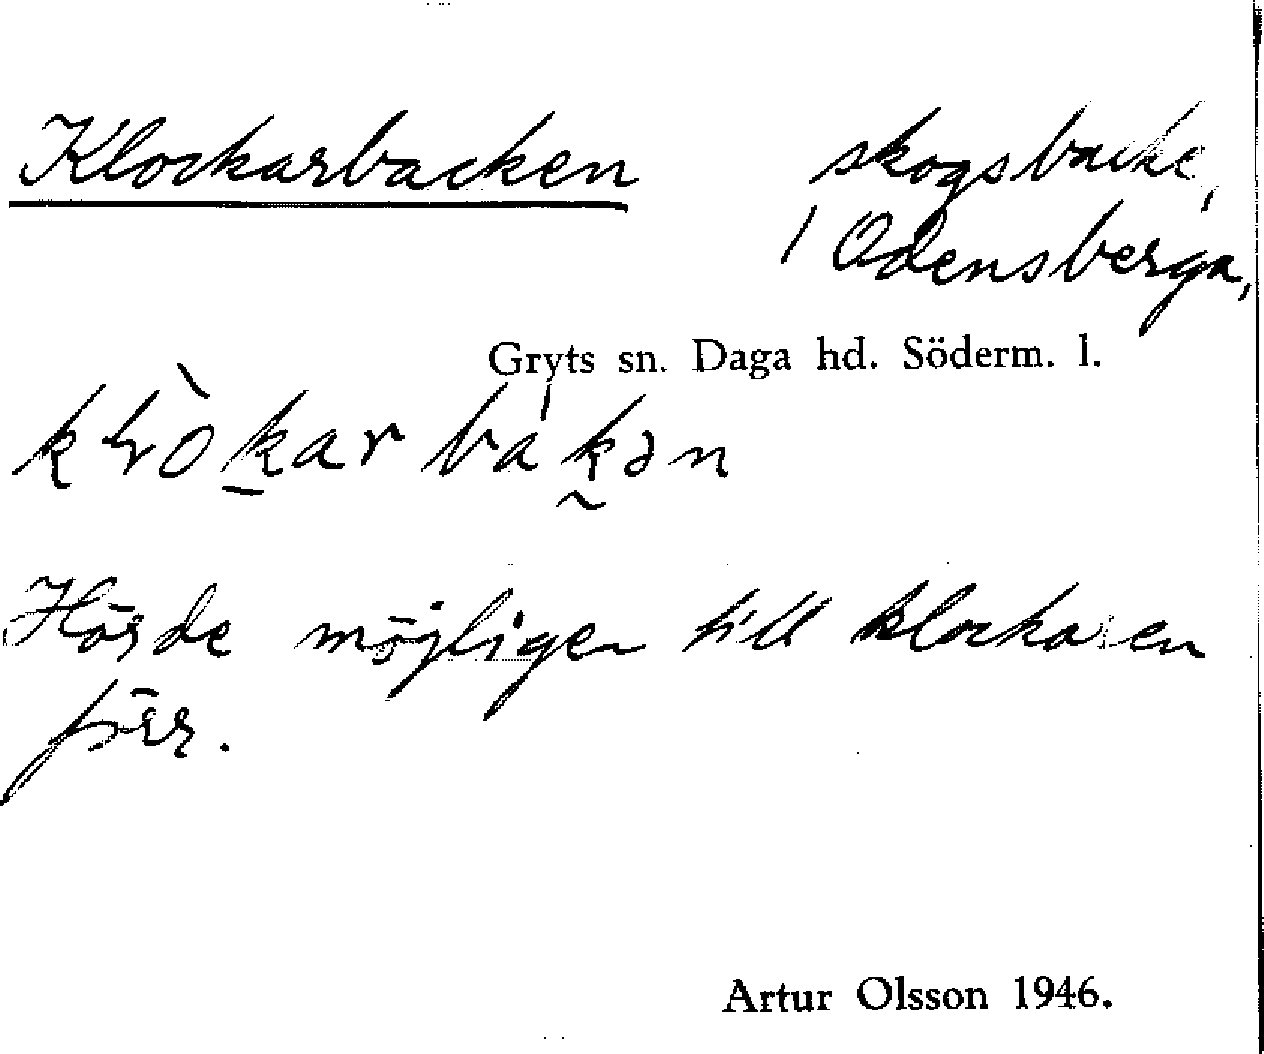 Klockarbacken skogsbacke,
/ Odensberga,
Gryts sn. Daga hd. Söderm. l.
Hörde möjligen till klockaren
förr.
Artur Olsson 1946.